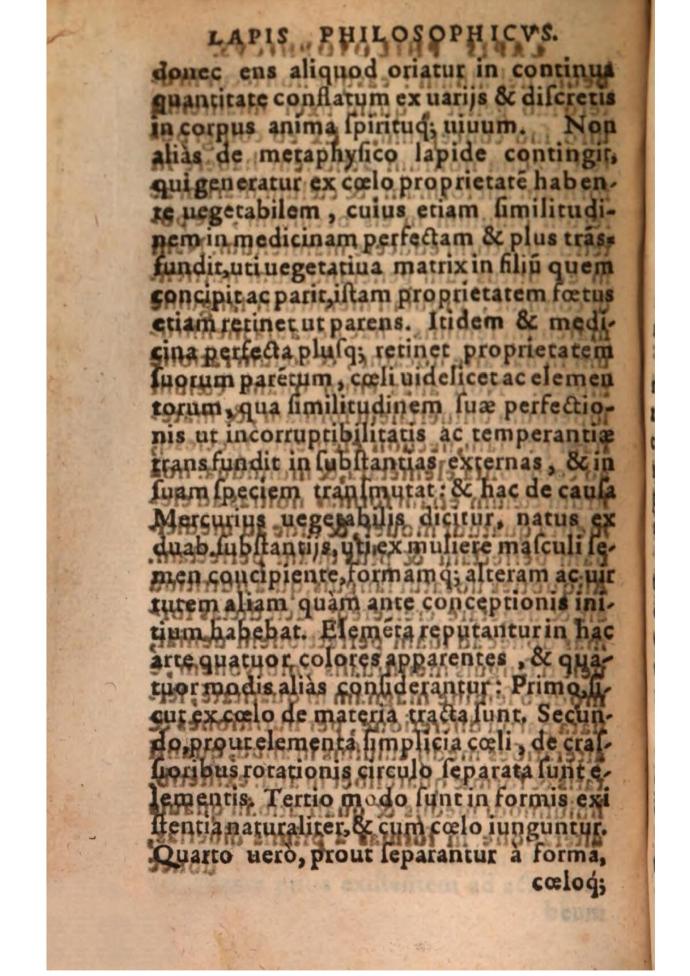 LAPIS PHILOSOPHICVS.
donec ens aliquod oriatur in continua
quantitate conflatum ex uarijs & discretis
in corpus anima spirituq; uiuum. Non
aliàs de metaphysico lapide contingit,
qui generatur ex cœlo proprietatē haben-
te uegetabilem, cuius etiam similitudi-
nem in medicinam perfectam & plus trās-
fundit, uti uegetatiua matrix in filiū quem
concipit ac parit, istam proprietatem fœtus
etiam retinet ut parens. Itidem & medi-
cina perfecta plusq; retinet proprietatem
suorum parētum, cœli uidelicet ac elemen
torum, qua similitudinem suæ perfectio-
nis ut incorruptibilitatis ac temperantiæ
transfundit in substantias externas, & in
suam speciem transmutat: & hac de causa
Mercurius uegetabilis dicitur, natus ex
duab. substantijs, uti ex muliere masculi se-
men concipiente, formamq; alteram ac uir
tutem aliam quàm ante conceptionis ini-
tium habebat. Elemēta reputantur in hac
arte quatuor colores apparentes, & qua-
tuor modis aliàs considerantur: Primo, si-
cut ex cœlo de materia tracta sunt. Secun-
do, prout elementa simplicia cœli, de cras-
sioribus rotationis circulo separata sunt e-
lementis. Tertio modo sunt in formis exi
stentia naturaliter, & cum cœlo iunguntur.
Quarto uerò, prout separantur à forma,
cœloq;